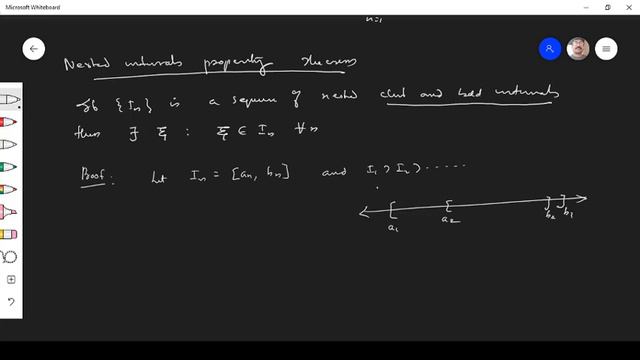 Microsoft Whiteboard
n=1
Nested intervals property theorem
If {Iₙ} is a sequence of nested closed and bdd intervals
then ∃ ξ : ξ ∈ Iₙ ∀n
Proof: Let Iₙ = [aₙ, bₙ] and I₁ ⊃ I₂ ⊃ ......
a₁ a₂ b₂ b₁